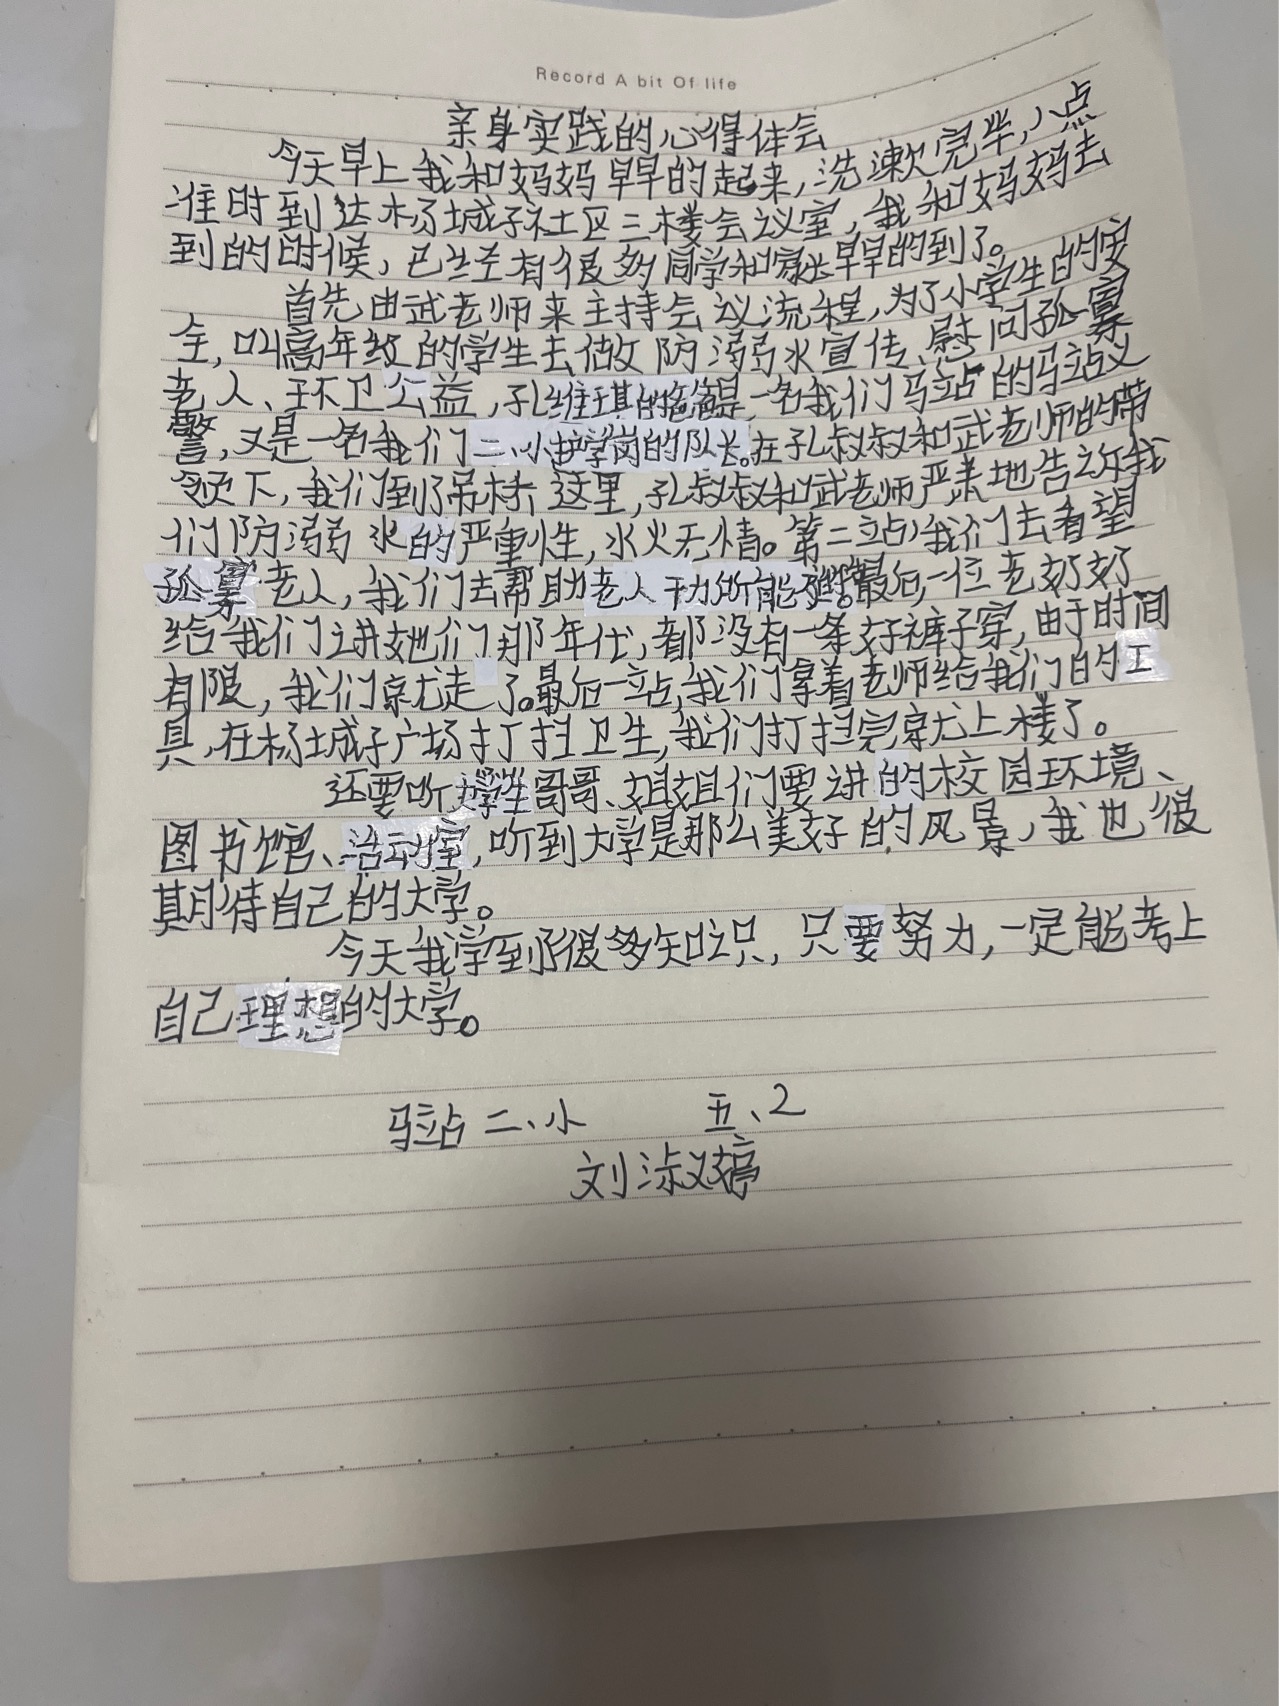 Record A bit Of life
亲身实践的心得体会
今天早上我和妈妈早早的起来,洗漱完毕,八点
准时到达杨城子社区三楼会议室,我和妈妈去
到的时候,已经有很多同学和家长早早的到了。
首先由武老师来主持会议流程,为了小学生的安
全,叫高年级的学生去做防溺水宣传、慰问孤寡
老人、环卫公益,孔维琪的爸爸是一名我们马站的马站义
警,又是一名我们二小护学岗的队长。在孔叔叔和武老师的带
领下,我们到了吊桥这里,孔叔叔和武老师严肃地告诉我
们防溺水的严重性,水火无情。第二站,我们去看望
孤寡老人,我们去帮助老人干力所能及的。最后,一位老奶奶
给我们讲她们那年代,都没有一条好裤子穿,由于时间
有限,我们就走了。最后一站,我们拿着老师给我们的工
具,在杨城子广场打扫卫生,我们打扫完就上楼了。
还要听大学生哥哥、姐姐们要讲的校园环境、
图书馆、活动室,听到大学是那么美好的风景,我也很
期待自己的大学。
今天我学到了很多知识,只要努力,一定能考上
自己理想的大学。
马站二、小 五、2
刘淑婷